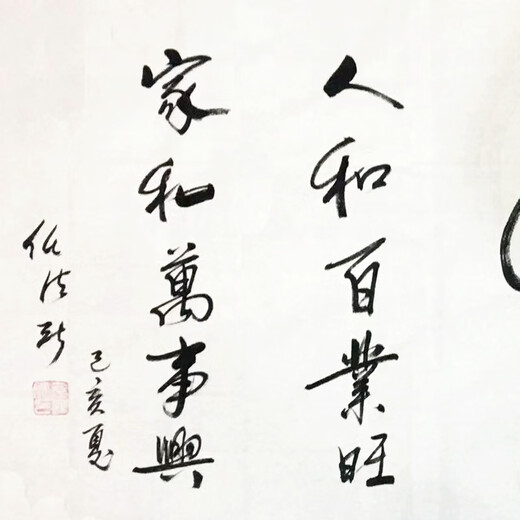 人和百業旺
家和萬事興
己亥夏
任法融